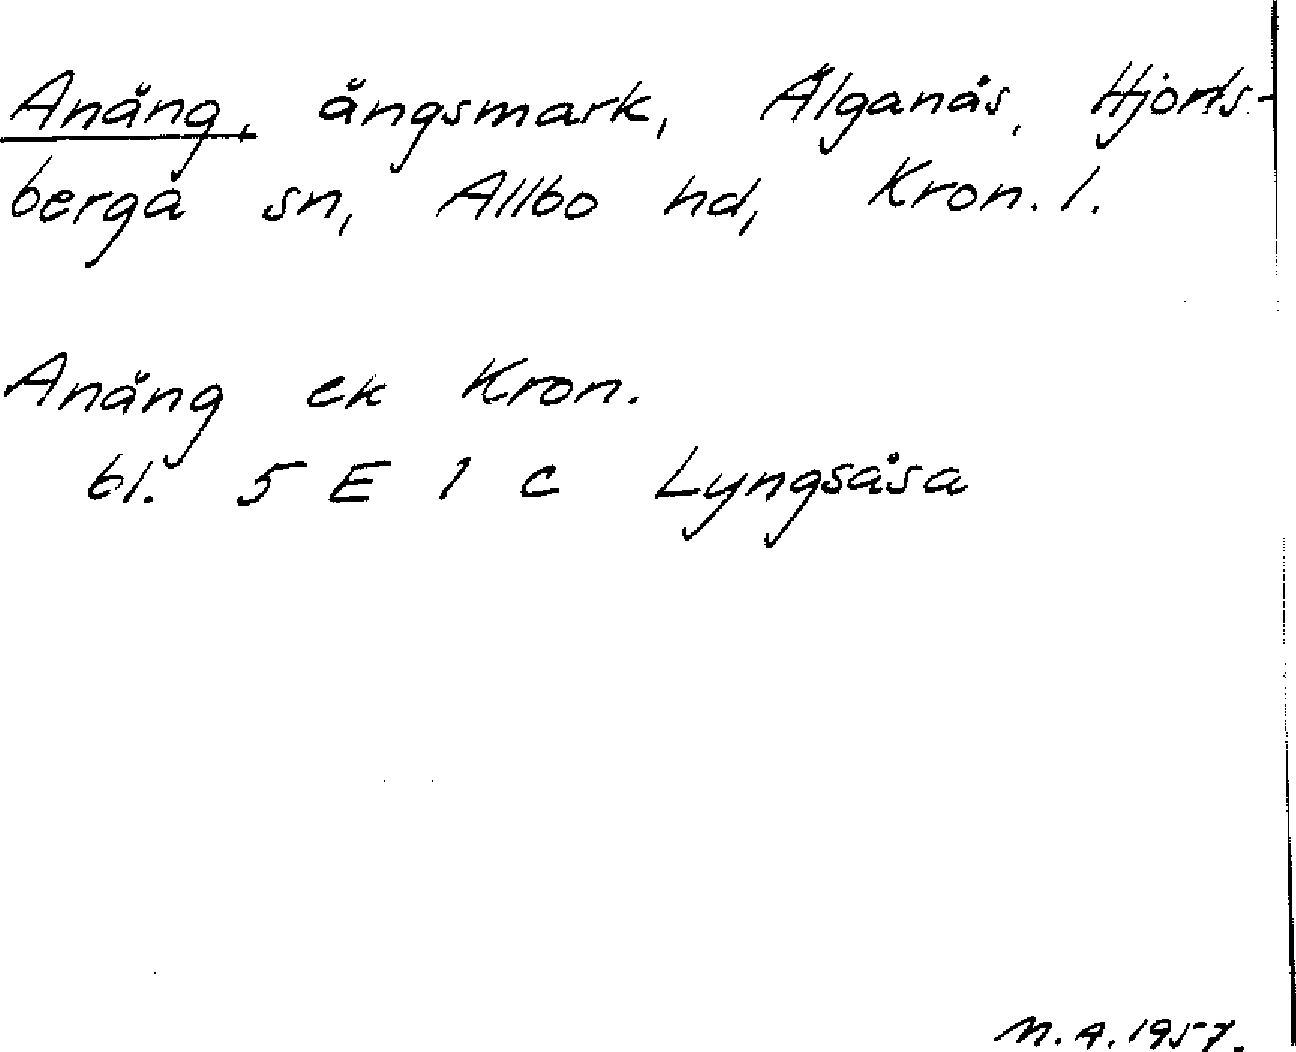 Anäng, ängsmark, Älganäs, Hjorts-
berga sn, Allbo hd, Kron. l.
Anäng ek Kron.
bl. 5 E 1 c Lyngsåsa
M.A. 1957.